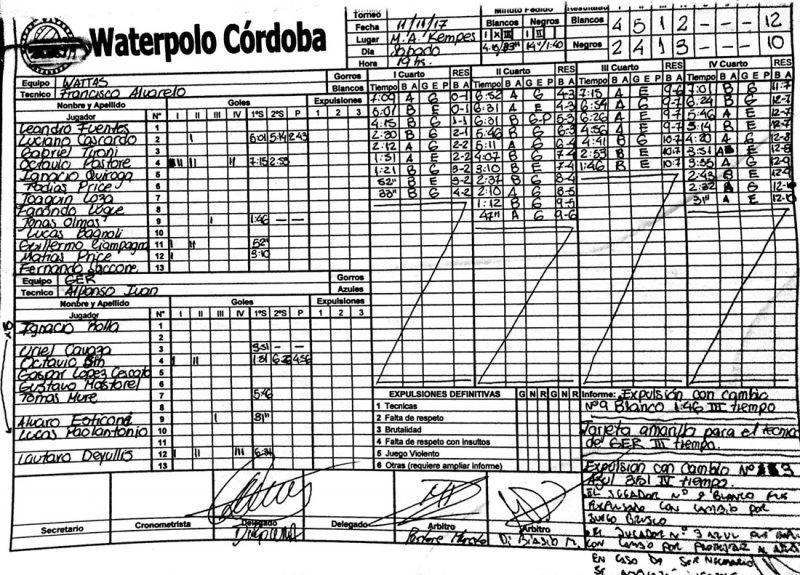 Waterpolo Córdoba
Torneo
Fecha 11/11/17
Lugar M.A. Kempes
Dia Sabado
Hora 19 hs.
Minuto Pedido
Blancos Negros
I X III I II
Blancos 4 5 1 2 - - - 12
Negros 2 4 1 3 - - - 10
Equipo WATTAS Gorros
Tecnico Francisco Alvarelo Blancos
Nombre y Apellido Goles Expulsiones
Jugador N° I II III IV 1°S 2°S P 1 2 3
Leandro Fuentes 1
Luciano Cascardo 2 I 6:01 5:14 2:43
Gabriel Tironi 3
Octavio Pastore 4 II II 7:15 2:53
Ignacio Quiroga 5
Tobias Price 6
Joaquin Loza 7
Facundo Luque 8
Jonas Olmas 9 I 1:46 — —
Lucas Bagnoli 10
Guillermo Ciampagna 11 I II 52"
Matias Price 12 I 3:10
Fernando Saccone 13
Equipo GER Gorros
Tecnico Alfonso Juan Azules
Nombre y Apellido Goles Expulsiones
Jugador N° I II III IV 1°S 2°S P 1 2 3
Ignacio Rolla 1
2
Uriel Cavoza 3 3:51 — —
Octavio Bin 4 I II 1:31 6:26 4:56
Gaspar Lopez 5
Gustavo 6
Tomas Mure 7 5:46
8
Alvaro 9 I
Lucas Paolantonio 10
11
Lautaro Dejullis 12 I II III 6:31
13
I Cuarto RES II Cuarto RES III Cuarto RES IV Cuarto RES
Tiempo B A G E P B A Tiempo B A G E P B A Tiempo B A G E P B A Tiempo B A G E P B A
7:09 A G 0-1 6:52 A G 4-3 7:15 A E 9-6 7:01 B G 11-7
6:01 B E 0-1 6:31 A E 4-3 6:54 A G 9-7 6:24 B G 12-7
4:15 B G 1-1 6:31 B G-P 5-3 6:26 A E 9-7 5:46 A E
2:30 B G 2-1 5:46 B G 6-3 4:56 A E 9-7 5:14 B E
2:12 A G 2-2 5:11 A G 6-4 4:41 B G 10-7 4:20 A G 12-8
1:31 A E 2-2 4:07 B G 7-4 2:53 B E 10-7 3:51 A E 12-8
1:21 B G 3-2 3:10 B E 7-4 1:46 B E 10-7 3:35 A G 12-9
52" B E 3-2 2:37 B G 8-4 2:43 B E 12-9
33" B G 4-2 2:10 A G 8-5 2:32 A G 12-10
1:12 B G 9-5 31" A E 12-10
47" A G 9-6
EXPULSIONES DEFINITIVAS G N R G N R
1 Tecnicas
2 Falta de respeto
3 Brutalidad
4 Falta de respeto con insultos
5 Juego Violento
6 Otras (requiere ampliar informe)
Informe: Expulsión con cambio
N°9 Blanco 1:46 III tiempo
Tarjeta amarilla para el tecnico
del GER III tiempo.
Expulsion con cambio N° 3
Azul 3:51 IV tiempo.
EL JUGADOR N° 9 BLANCO FUE
EXPULSADO CON CAMBIO POR
JUEGO BRUSCO
EL JUGADOR N° 3 AZUL FUE
CON CAMBIO POR PROTESTAR
EN CASO DE SER NECESARIO
SE
Secretario
Cronometrista
Delegado
Delegado
Arbitro
Arbitro
Di Biasio M.